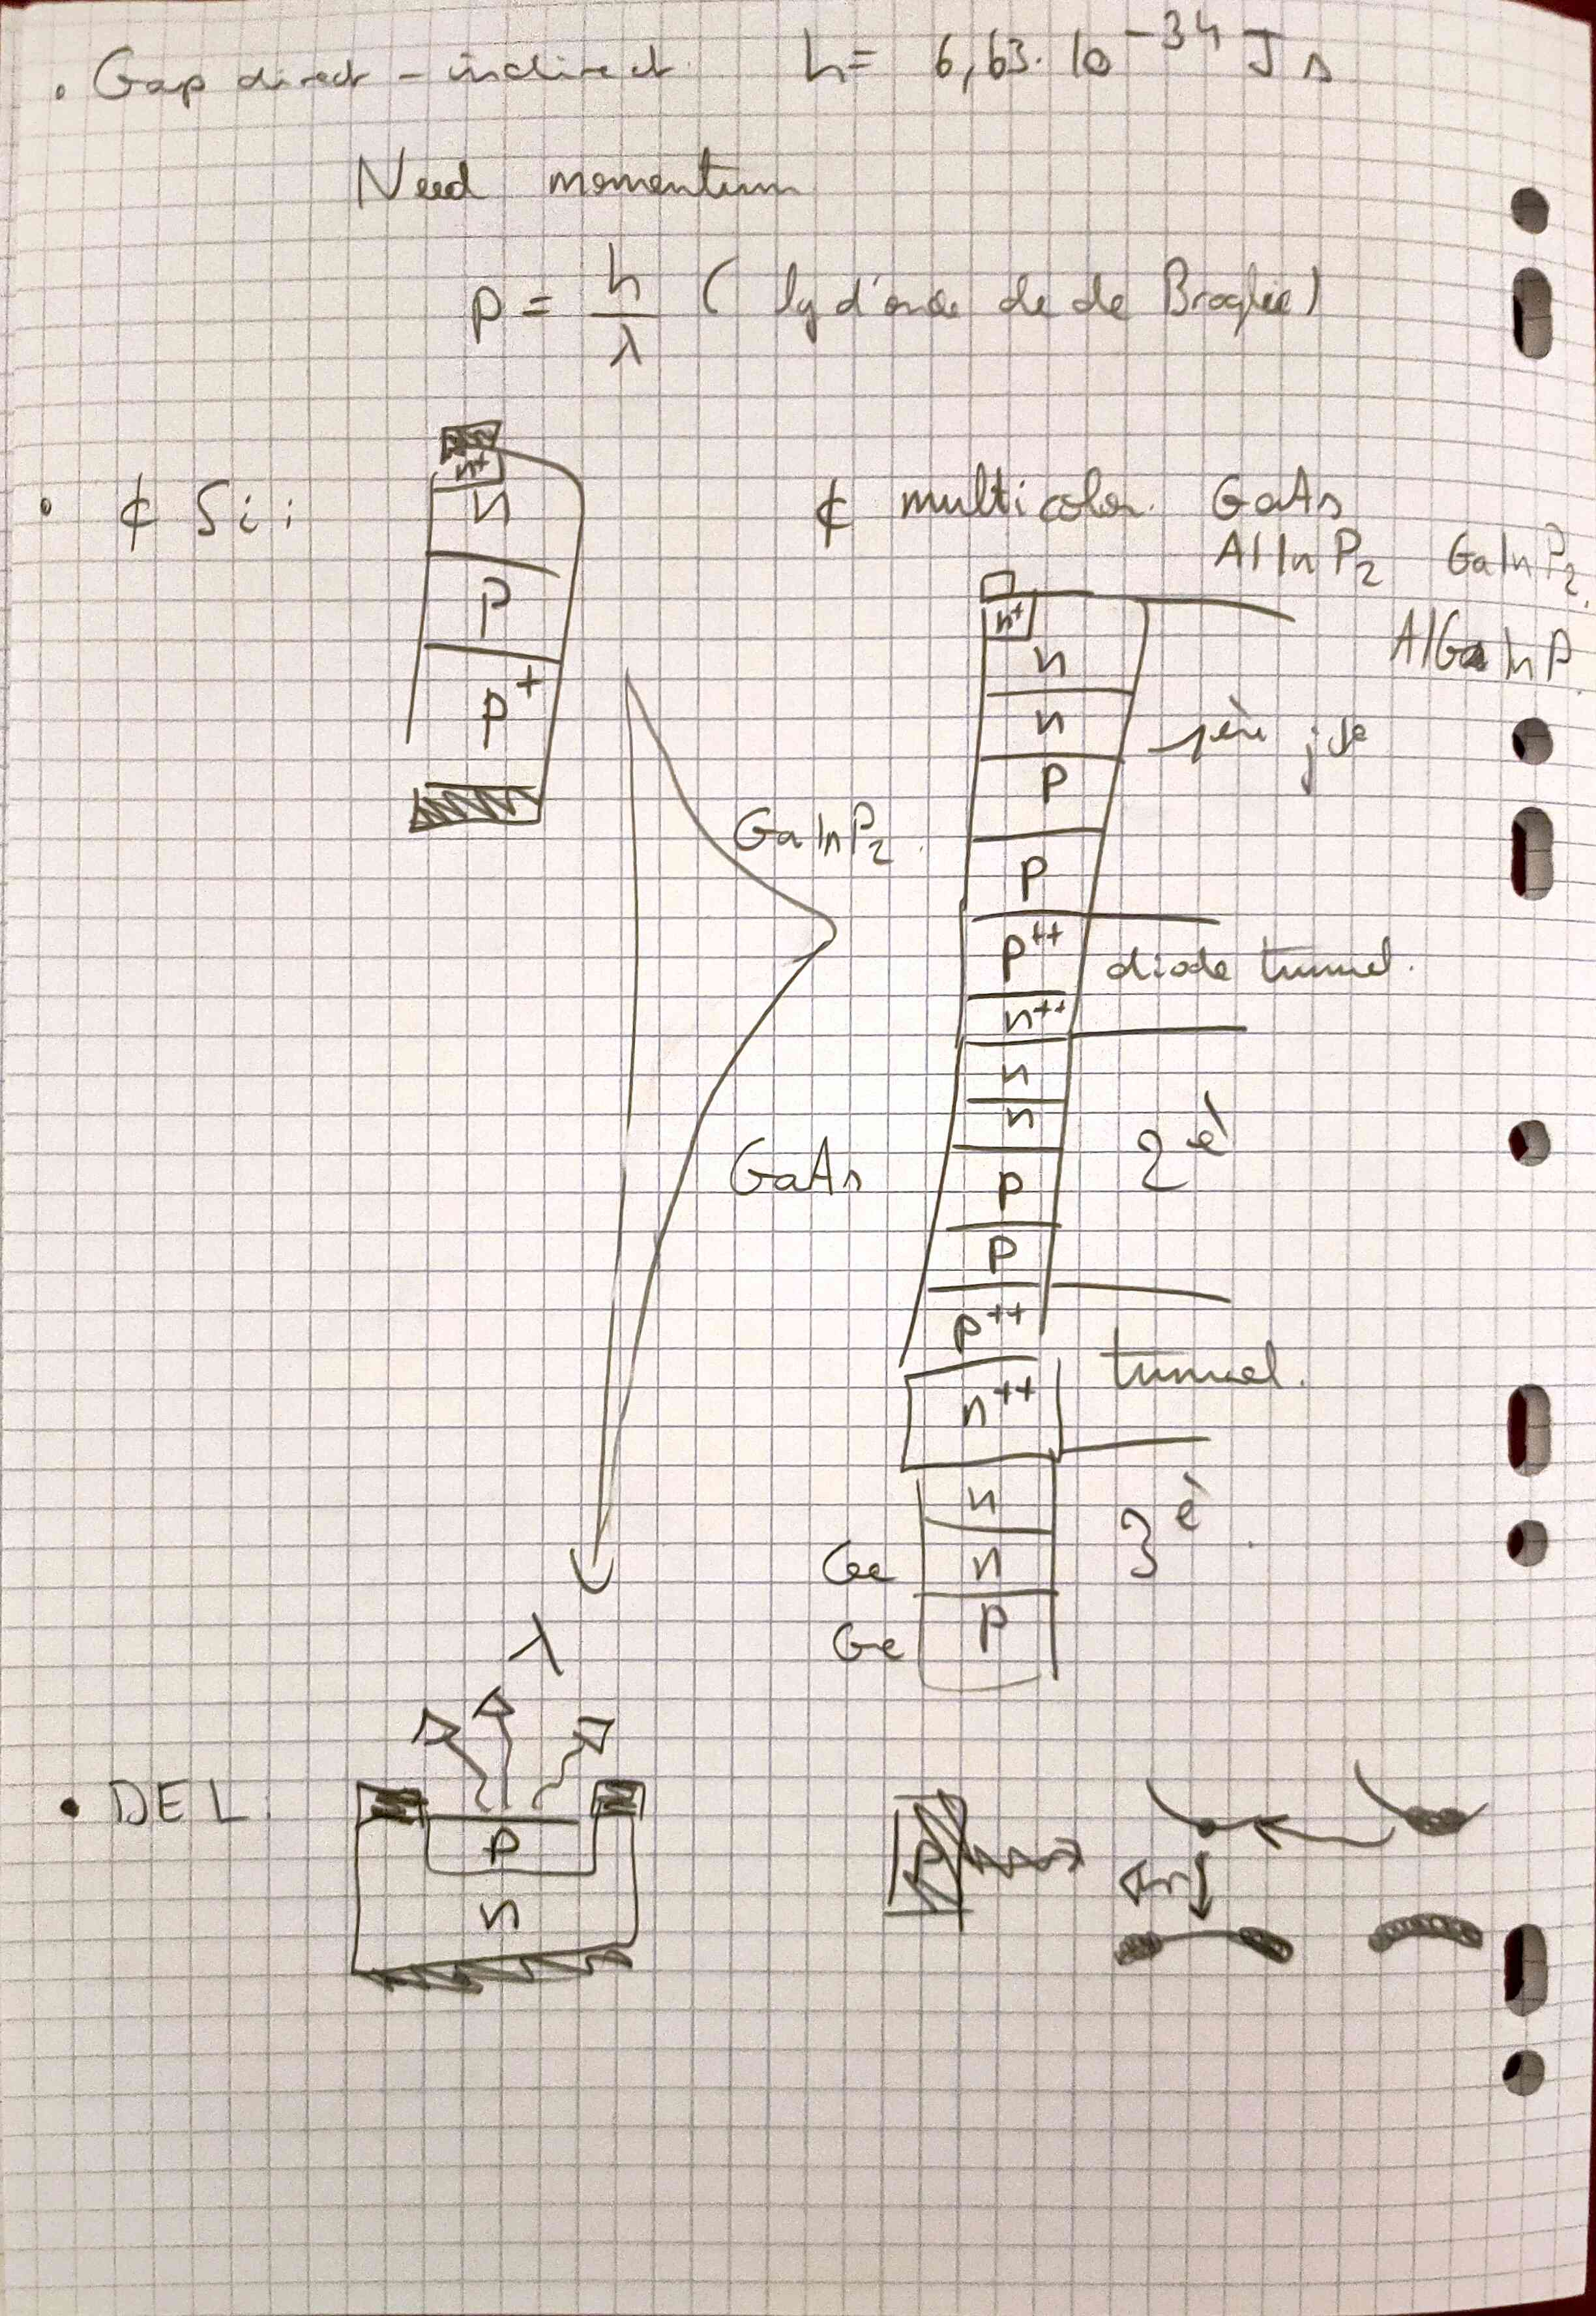 . Gap direct - indirect. h = 6,63. 10⁻³⁴ J s
Need momentum
p = h/λ ( lg d'onde de de Broglie)
• ¢ Si :
n+
n
p
p+
¢ multicolor. GaAs
AlInP₂ GaInP₂.
AlGaInP
n+
n
n
1ère jct
p
GaInP₂.
p
p++
diode tunnel.
n++
n
n
2è
GaAs
p
p
p++
tunnel.
n++
n
3è.
Ge n
Ge p
λ
• DEL.
p
n